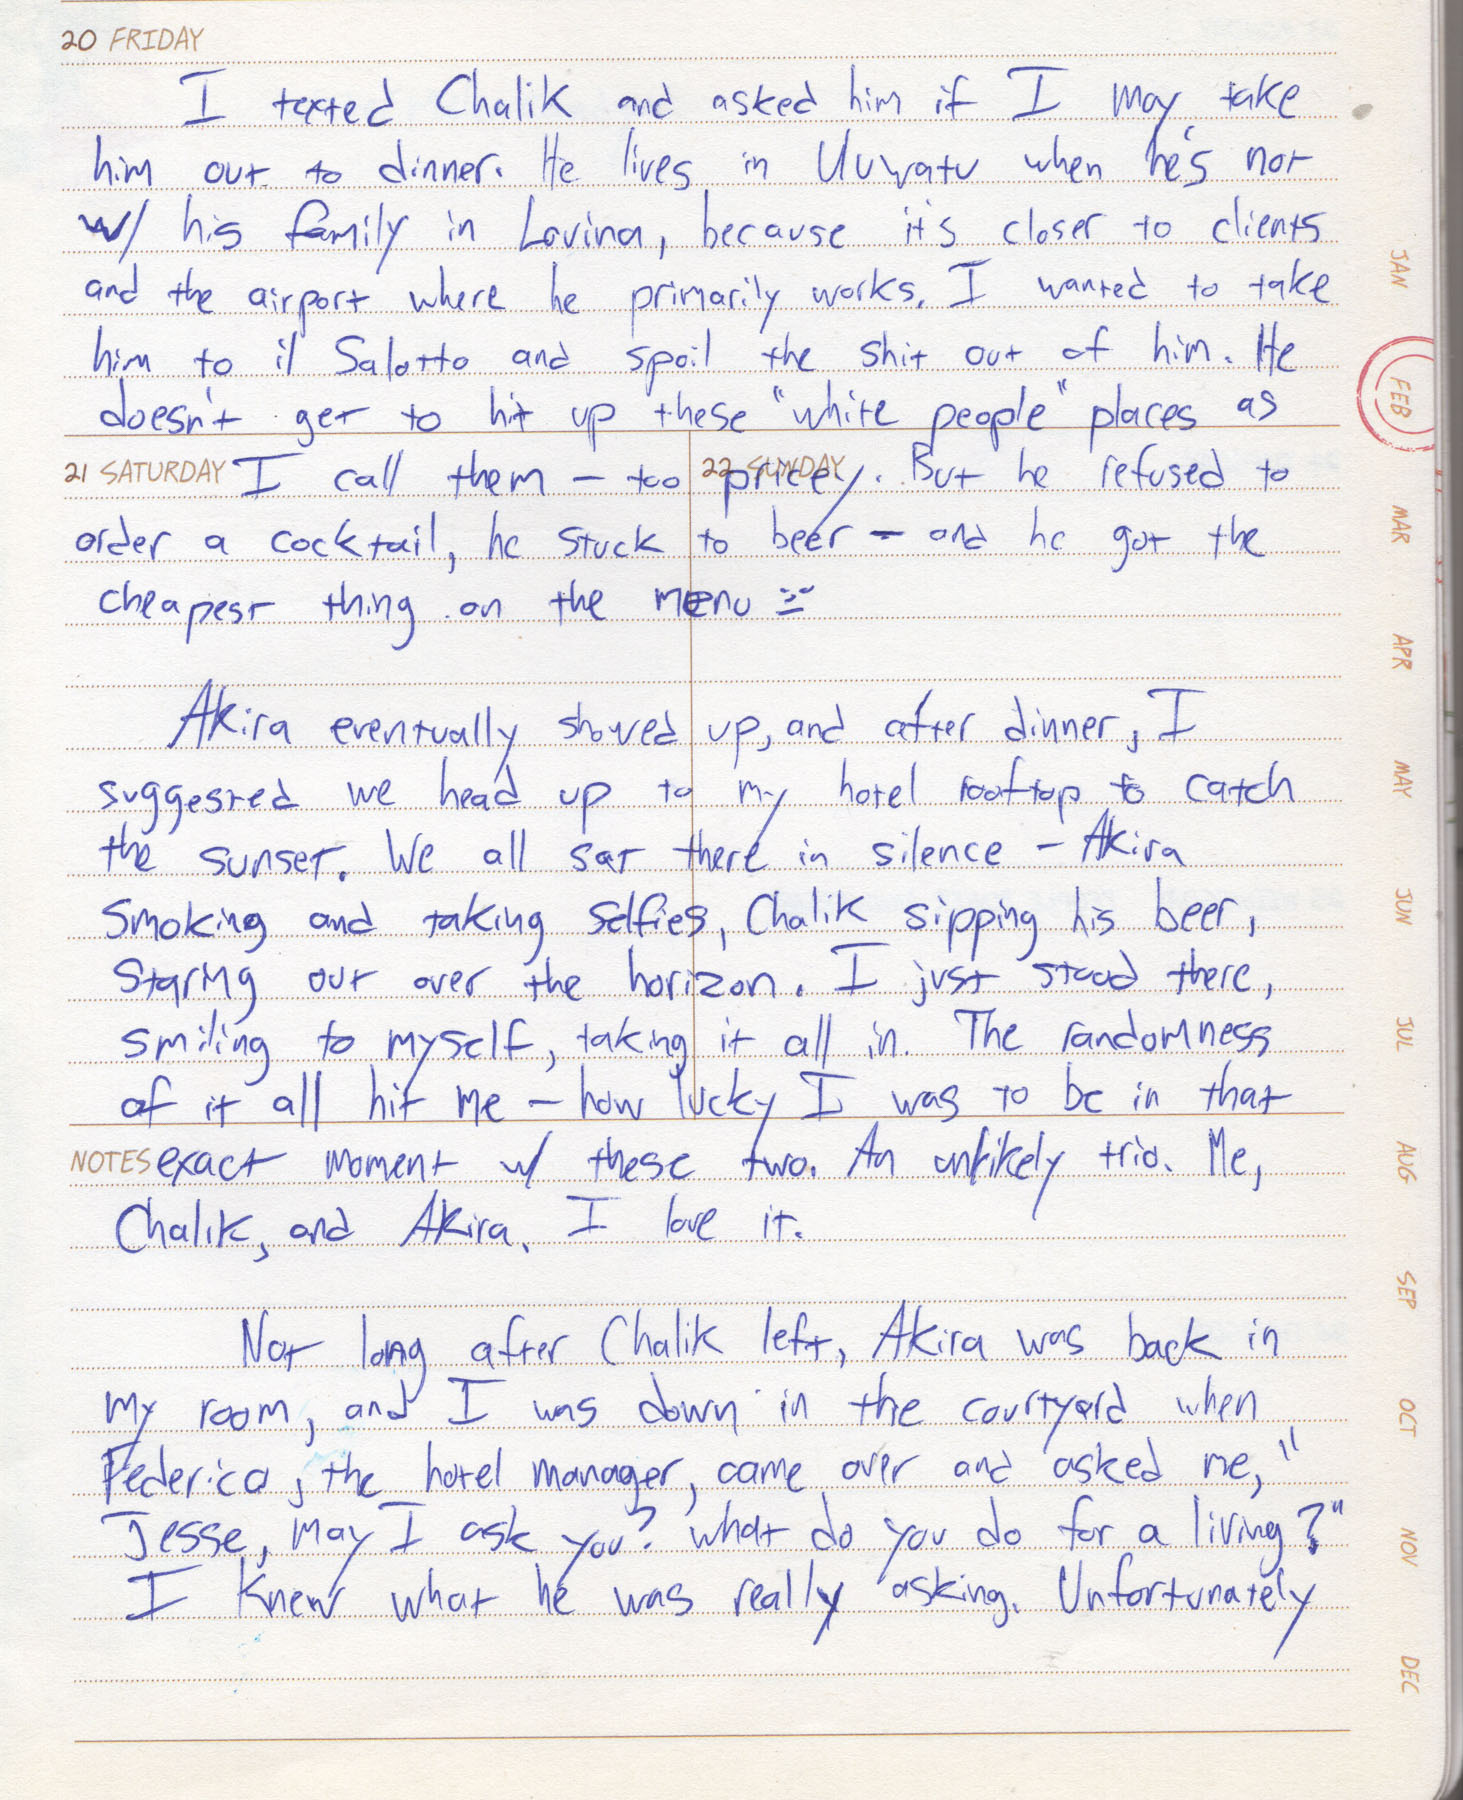 20 FRIDAY
I texted Chalik and asked him if I may take
him out to dinner. He lives in Uluwatu when he's not
w/ his family in Lovina, because it's closer to clients
and the airport where he primarily works. I wanted to take
him to il Salotto and spoil the shit out of him. He
doesn't get to hit up these "white people" places as
21 SATURDAY I call them - too pricey. But he refused to
22 SUNDAY
order a cocktail, he stuck to beer - and he got the
cheapest thing on the menu
Akira eventually showed up, and after dinner, I
suggested we head up to my hotel rooftop to catch
the sunset. We all sat there in silence - Akira
smoking and taking selfies, Chalik sipping his beer,
staring out over the horizon. I just stood there,
smiling to myself, taking it all in. The randomness
of it all hit me - how lucky I was to be in that
NOTES exact moment w/ these two. An unlikely trio. Me,
Chalik, and Akira. I love it.
Not long after Chalik left, Akira was back in
my room, and I was down in the courtyard when
Federico, the hotel manager, came over and asked me, "
Jesse, may I ask you? what do you do for a living?"
I knew what he was really asking. Unfortunately
JAN
FEB
MAR
APR
MAY
JUN
JUL
AUG
SEP
OCT
NOV
DEC